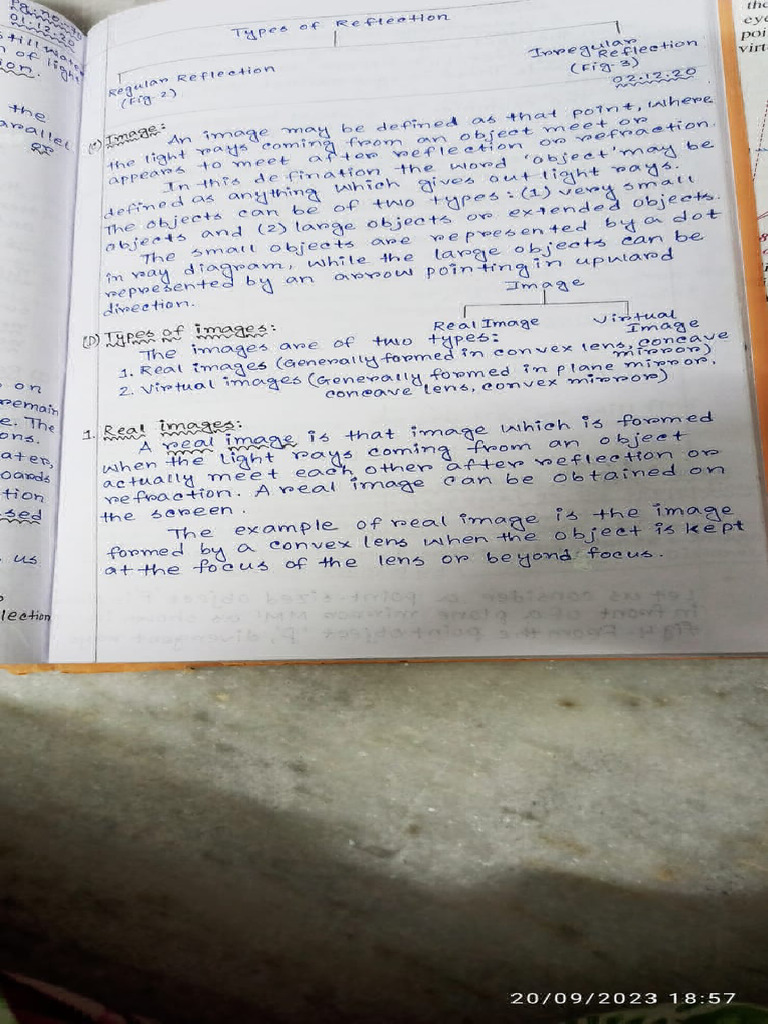 Pg.no.-90
01.12.20
still water
n of light
ion.
the
arallel
or
on
remain
e. The
ons.
ater,
oards
tion
sed
us
lection
Types of Reflection
Regular Reflection
(Fig-2)
Irregular
Reflection
(Fig-3)
02.12.20
(C) Image:
An image may be defined as that point, where
the light rays coming from an object meet or
appears to meet after reflection or refraction.
In this defination the word 'object' may be
defined as anything which gives out light rays.
The objects can be of two types: (1) very small
objects and (2) large objects or extended objects.
The small objects are represented by a dot
in ray diagram, while the large objects can be
represented by an arrow pointing in upward
direction.
Image
Real Image
Virtual
Image
(D) Types of images:
The images are of two types:
1. Real images (Generally formed in convex lens, concave
mirror)
2. Virtual images (Generally formed in plane mirror,
concave lens, convex mirror)
1. Real images:
A real image is that image which is formed
when the light rays coming from an object
actually meet each other after reflection or
refraction. A real image can be obtained on
the screen.
The example of real image is the image
formed by a convex lens when the object is kept
at the focus of the lens or beyond focus.
the
eye
poi
virt
20/09/2023 18:57